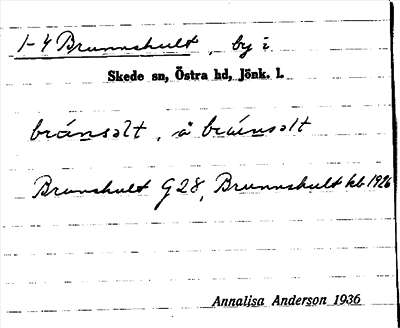 1-4 Brunnshult, by i
Skede sn, Östra hd, Jönk. l.
bránsalt, å bráunsalt
Brunshult G28, Brunnshult kb 1926
Annalisa Anderson 1936